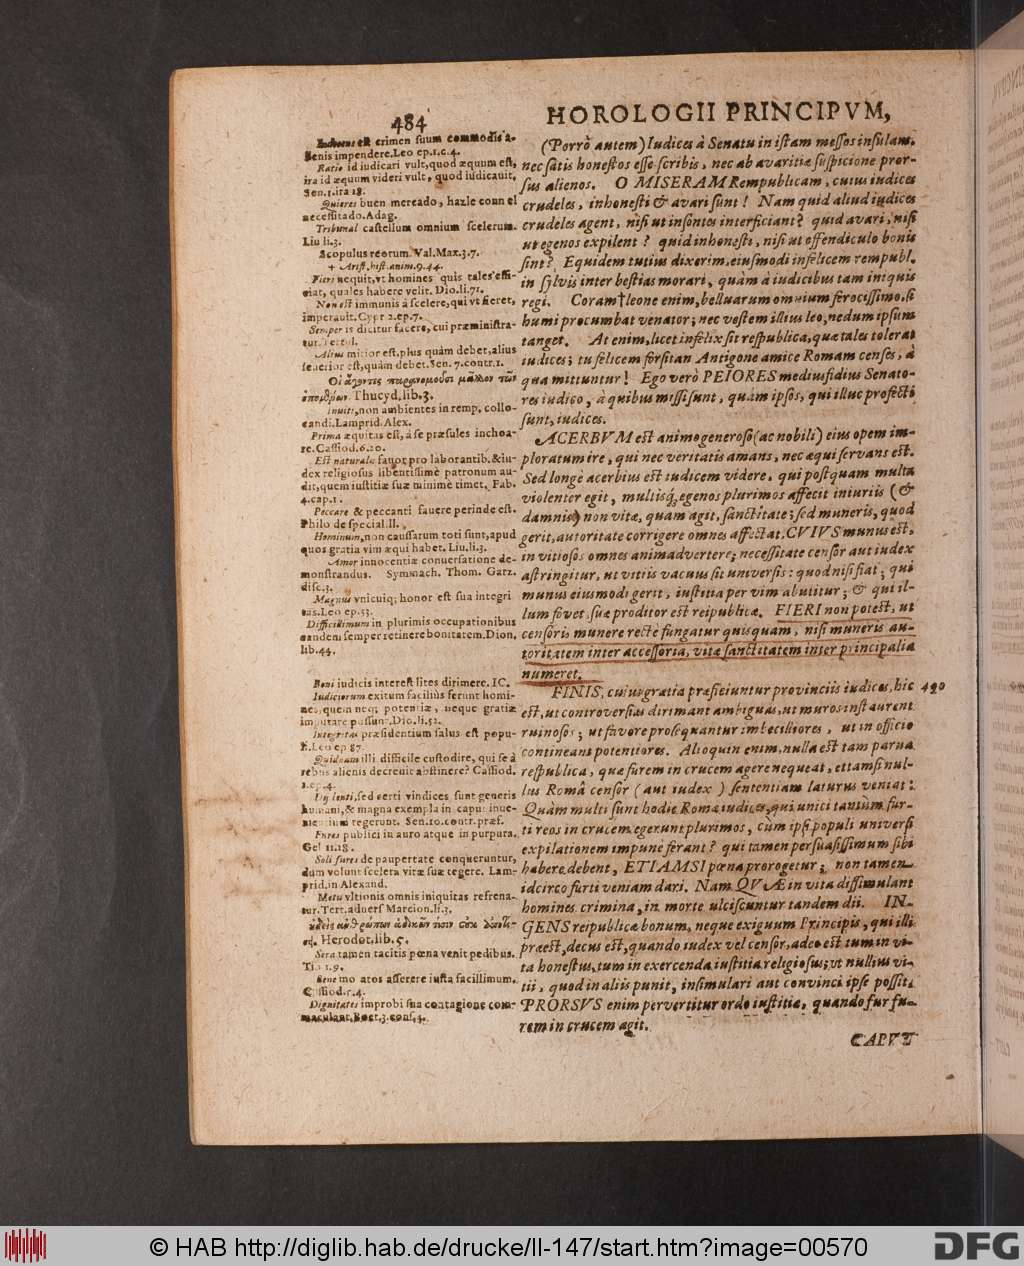 484
HOROLOGII PRINCIPVM,
est crimen suum commodis a-
lienis impendere. Leo ep.1.c.4.
Ratio id iudicari vult, quod æquum est,
ira id æquum videri vult, quod iudicauit,
Sen.1.ira 18.
Quieres buen mercado, hazle con el
necessitado. Adag.
Tribunal castellum omnium scelerum.
Liu li.3.
Scopulus reorum. Val. Max.3.7.
† Arist. hist. anim. 9.44.
Fieri nequit, vt homines quis tales effi-
ciat, quales habere velit. Dio.li.71.
Non est immunis à scelere, qui vt fieret,
imperauit. Cypr 2.ep.7.
Semper is dicitur facere, cui præministra-
tur. Tertul.
Alius mitior est, plus quàm debet, alius
seuerior est, quàm debet. Sen. 7.contr.1.
Thucyd. lib. 3.
Inuiti, non ambientes in remp. collo-
candi. Lamprid. Alex.
Prima æquitas est, à se præsules inchoa-
re. Cassiod.6.20.
Est naturalis fauor pro laborantib. & iu-
dex religiosus libentissimè patronum au-
dit, quem iustitiæ suæ minimè timet. Fab.
4.cap.1.
Peccare & peccanti fauere perinde est.
Philo de special.ll.
Hominum, non caussarum toti sunt, apud
quos gratia vim æqui habet. Liu.li.3.
Amor innocentiæ conuersatione de-
monstrandus. Symmach. Thom. Garz.
disc.3.
Magnus vnicuiq; honor est sua integri
tas. Leo ep.53.
Difficillimum in plurimis occupationibus
eandem semper retinere bonitatem. Dion.
lib.44.
Boni iudicis interest lites dirimere. IC.
Iudiciorum exitum facilius ferunt homi-
nes, quem neq; potentiæ, neque gratiæ
imputare possunt. Dio.li.52.
Integritas præsidentium salus est popu-
li. Leo ep 87.
Quidnam illi difficile custodire, qui se à
rebus alienis decreuit abstinere? Cassiod.
1.ep.4.
lenti, sed certi vindices sunt generis
humani, & magna exempla in caput inue-
nientium regerunt. Sen.10.contr.præf.
Fures publici in auro atque in purpura.
Gel 11.18.
Soli fures de paupertate conqueruntur,
dum volunt scelera vitæ suæ tegere. Lam-
prid. in Alexand.
Metu vltionis omnis iniquitas refrena-
tur. Tert. aduers Marcion. li.2.
Herodot. lib. 5.
Sera tamen tacitis pœna venit pedibus.
Tib 1.9.
Bene mo atos asserere iusta facillimum.
Cassiod.5.4.
Dignitates improbi sua contagione com-
maculant. Boet.3.cons.4.
(Porrò autem) Iudices à Senatu in istam messos insulam,
nec satis honestos esse scribis, nec ab avaritiæ suspicione pror-
sus alienos. O MISERAM Rempublicam, cuius iudices
crudeles, inhonesti & avari sunt! Nam quid aliud iudices
crudeles agent, nisi ut insontes interficiant? quid avari, nisi
ut egenos expilent? quid inhonesti, nisi ut offendiculo bonis
sint? Equidem tutius dixerim, eiusmodi infelicem rempubl.
in sylvis inter bestias morari, quàm à iudicibus tam iniquis
regi. Coram † leone enim, belluarum omnium ferocissimo, si
humi procumbat venator; nec vestem illius leo, nedum ipsum
tanget. At enim, licet infelix sit respublica, quæ tales tolerat
iudices; tu felicem forsitan Antigone amice Romam censes, à
qua mittuntur! Ego verò PEIORES mediusfidius Senato-
res iudico, à quibus missi sunt, quàm ipsos, qui illuc profecti
sunt, iudices.
ACERBVM est animo generoso (ac nobili) eius opem im-
ploratum ire, qui nec veritatis amans, nec æqui servans est.
Sed longè acerbius est iudicem videre, qui postquam multa
violenter egit, multisq; egenos plurimos affecit iniuriis (&
damnis) non vitæ, quam agit, sanctitate; sed muneris, quod
gerit, autoritate corrigere omnes affectat. CVIVS munus est,
in vitiosos omnes animadvertere; necessitate censor aut iudex
astringitur, ut vitiis vacuus sit universis: quod nisi fiat; qui
munus eiusmodi gerit, iustitia per vim abutitur; & qui il-
lum fovet, suæ proditor est reipublicæ. FIERI non potest, ut
censoris munere rectè fungatur quisquam, nisi muneris au-
toritatem inter accessoria, vitæ sanctitatem inter principalia
numeret.
FINIS, cuius gratia præficiuntur provinciis iudices, hic 490
est, ut controversias dirimant ambiguas, ut muros instaurent
ruinosos; ut favore prosequantur imbecilliores, ut in officio
contineant potentiores. Alioquin enim, nulla est tam parua
respublica, quæ furem in crucem agere nequeat, etiamsi nul-
lus Româ censor (aut iudex) sententiam laturus veniat:
Quàm multi sunt hodie Romæ iudices, qui unici tantùm fur-
ti reos in crucem egerunt plurimos, cùm ipsi populi universi
expilationem impune ferant? qui tamen persuasissimum sibi
habere debent, ETIAMSI pœna prorogetur; non tamen
idcirco furti veniam dari. Nam QVÆ in vita dissimulant
homines crimina, in morte ulciscuntur tandem dii. IN-
GENS reipublicæ bonum, neque exiguum Principis, qui illi
præest, decus est, quando iudex vel censor, adeo est tum in vi-
ta honestus, tum in exercenda iustitia religiosus; ut nullius vi-
tii, quod in aliis punit, insimulari aut convinci ipse possit.
PRORSVS enim pervertitur ordo iustitiæ, quando fur fu-
rem in crucem agit.
CAPVT
© HAB http://diglib.hab.de/drucke/li-147/start.htm?image=00570
DFG